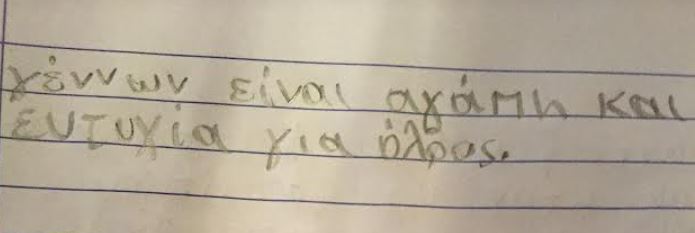 γέννων είναι αγάπη και
ευτυχία για όλους.